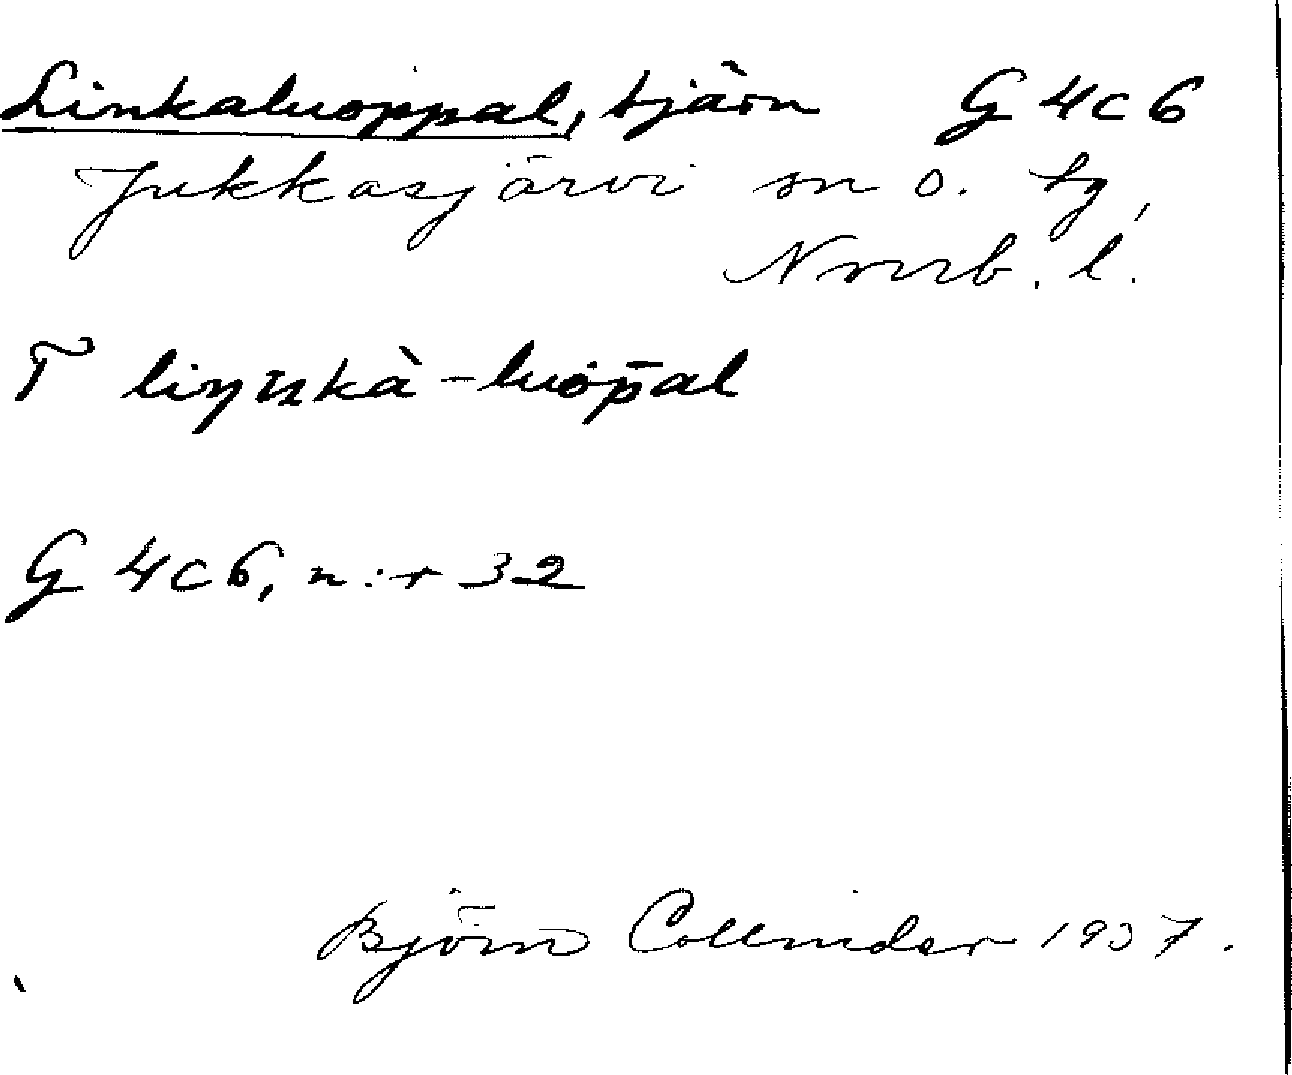 Linkaluoppal, tjärn G 4 c 6
Jukkasjärvi sn o. tg,
Norrb. l.
T liŋŋkà-luòp̄al
G 4 c 6, n:r 32
Björn Collinder 1937.